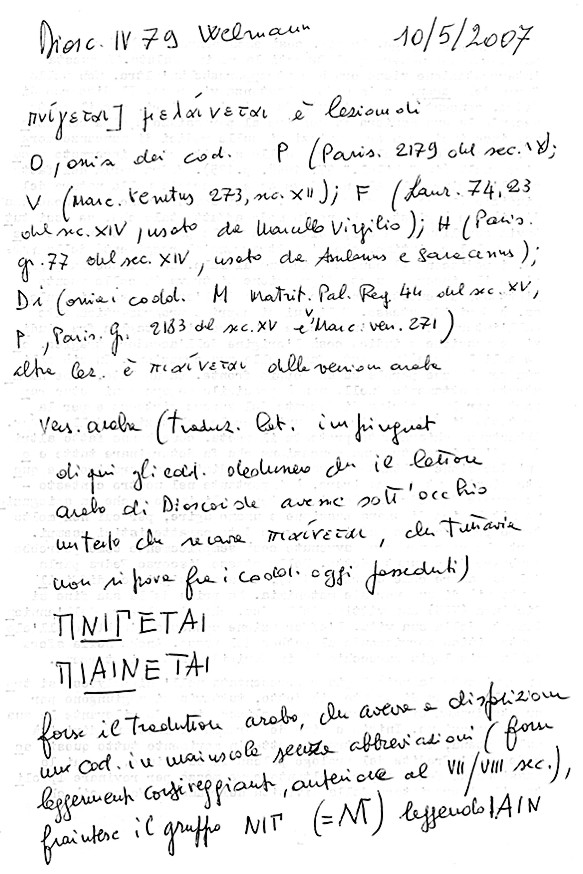 Diosc. IV 79 Welmann 10/5/2007
πνίγεται] μελαίνεται è lezion di
O, ossia dei cod. P (Paris. 2179 del sec. IX);
V (Marc. Venetus 273, sec. XII); F (Laur. 74,23
del sec. XIV, usato da Marcello Virgilio); H (Paris.
gr. 77 del sec. XIV, usato da Asulanus e Saracenus);
Di (ossia i codd. M Matrit. Pal. Reg. 44 del sec. XV,
P, Paris. Gr. 2183 del sec. XV e V Marc. ven. 271)
altra lez. è πιαίνεται della version araba
Vers. araba (traduz. lat. impinguat
di qui gli edd. dedussero che il lettore
arabo di Dioscoride avesse sott'occhio
un testo che recava πιαίνεται, che tuttavia
non si trova fra i codd. oggi posseduti)
ΠΝΙΓΕΤΑΙ
ΠΙΑΙΝΕΤΑΙ
forse il traduttore arabo, che aveva a disposizione
un cod. in maiuscola senza abbreviazioni (forse
leggermente corsiveggiante, anteriore al VII/VIII sec.),
fraintese il gruppo ΝΙΓ (=ΝΓ) leggendo ΙΑΙΝ